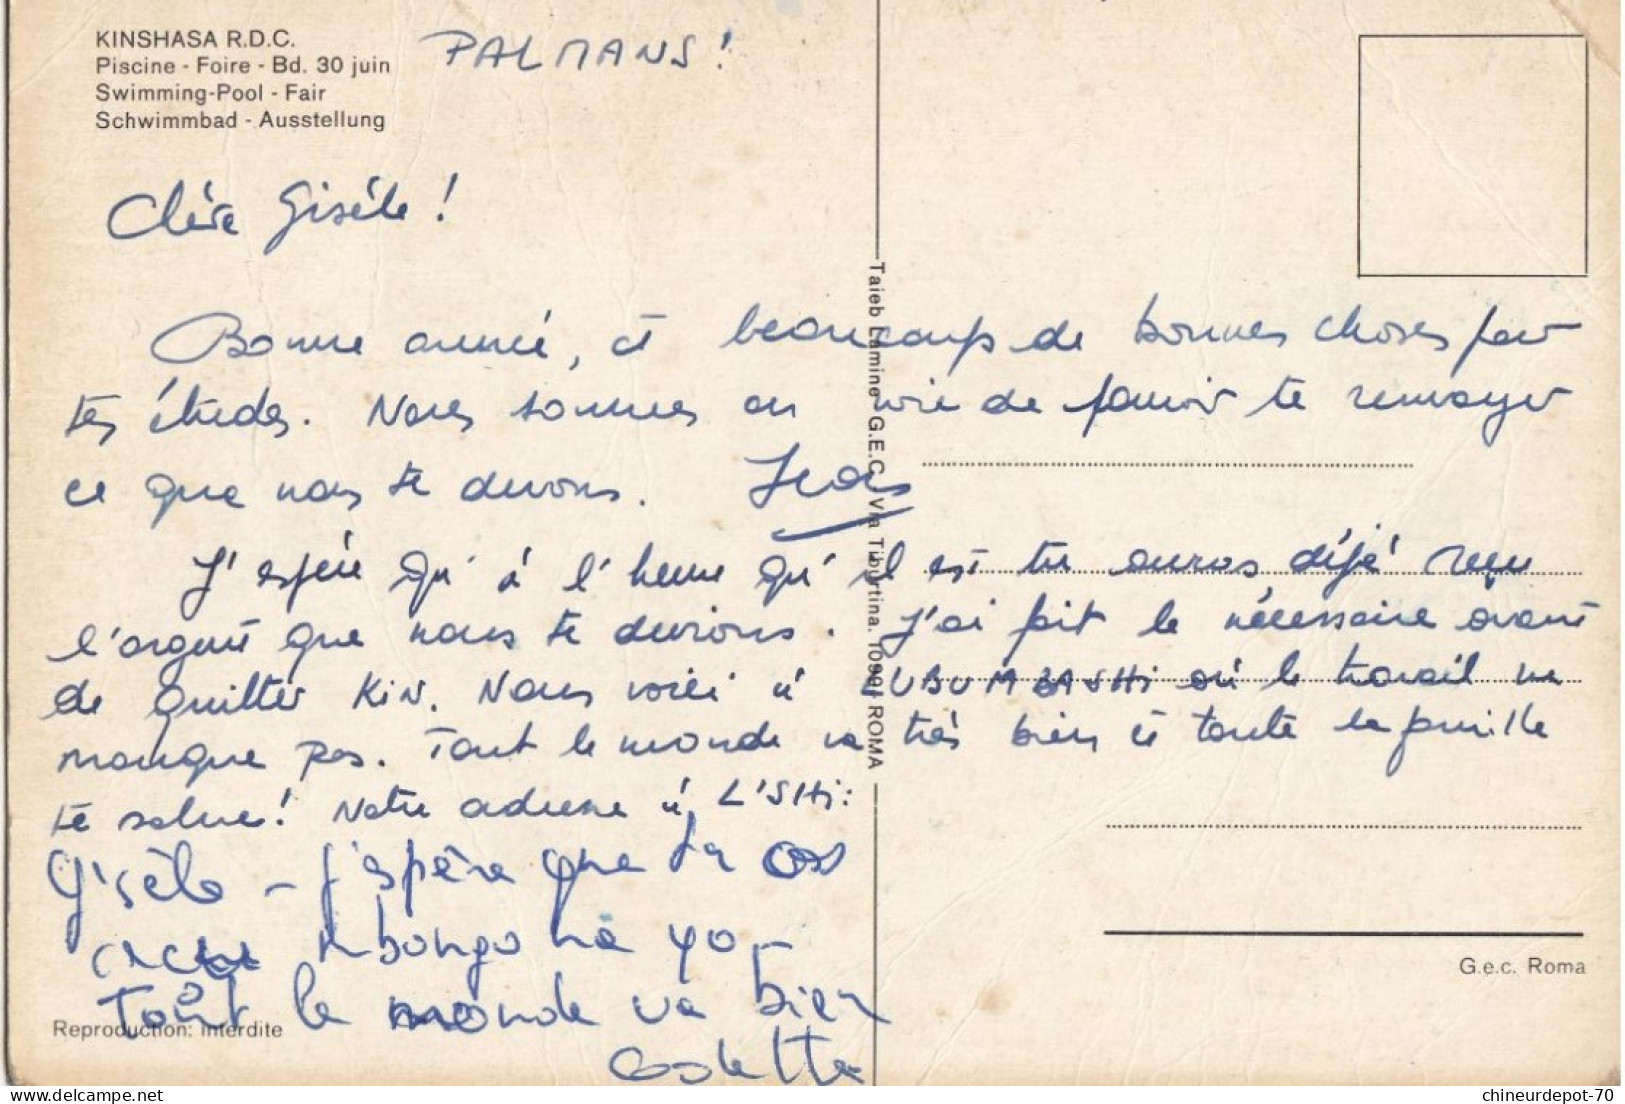 KINSHASA R.D.C.
Piscine - Foire - Bd. 30 juin
Swimming-Pool - Fair
Schwimmbad - Ausstellung
PALMANS !
Chère Gisèle !
Bonne année, et beaucoup de bonnes choses pour
tes études. Nous sommes en voie de pouvoir te renvoyer
ce que nous te devons.
J'espère qu'à l'heure qu'il est tu auras déjà reçu
l'argent que nous te devions. J'ai fait le nécessaire avant
de quitter KIN. Nous voici à LUBUMBASHi où le travail ne
manque pas. Tout le monde va très bien et toute la famille
te salue! Notre adresse à L'SHi:
Gisèle - J'espère que tu as
reçu mbongo na yo -
Tout le monde va bien
Taieb Lamine G.E.C. Via Tiburtina. 1099 ROMA
G.e.c. Roma
Reproduction: Interdite
www.delcampe.net
chineurdepot-70